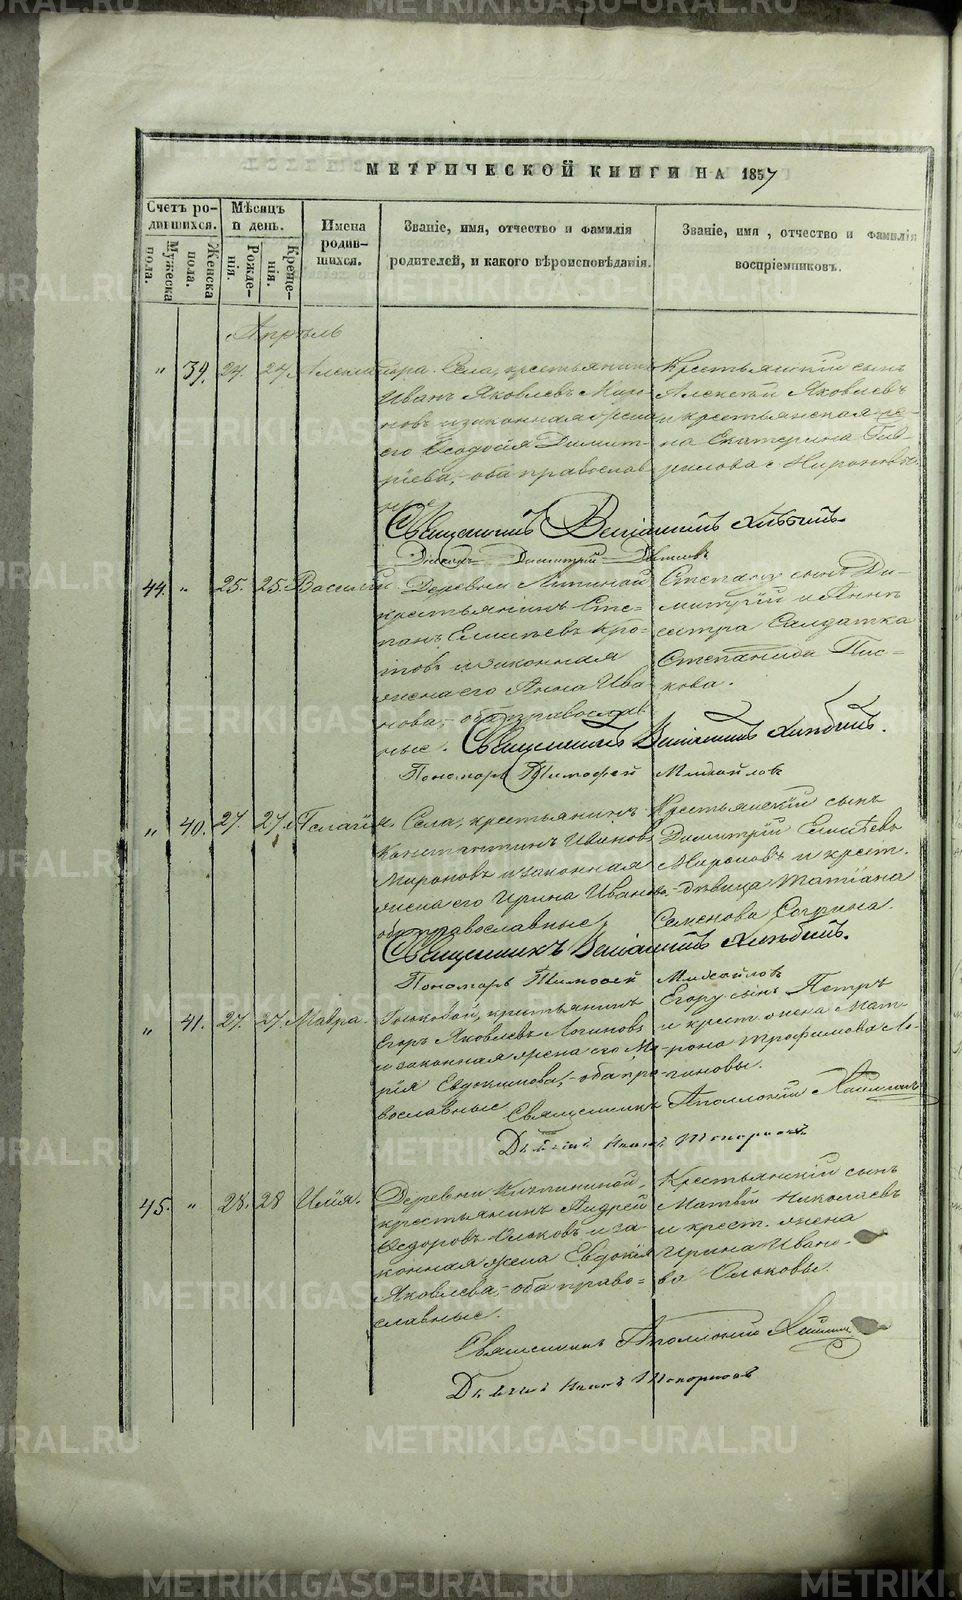 МЕТРИЧЕСКОЙ КНИГИ НА 1857
Счетъ родившихся.
Мѣсяцъ и день.
Имена родившихся.
Званіе, имя, отчество и фамилія
родителей, и какого вѣроисповѣданія.
Званіе, имя, отчество и фамилія
воспріемниковъ.
Мужеска пола.
Женска пола.
Рожденія.
Крещенія.
Апрѣль
" 39. 24. 24. Александра. Села, крестьянинъ
Иванъ Яковлевъ Миро-
новъ и законная жена
его Ѳеодосія Димит-
ріева, - оба православ
ные
Крестьянскій сынъ
Алексѣй Яковлевъ
и крестьянская же-
на Екатерина Гав-
рилова Мироновы.
Священникъ Веніаминъ
Діаконъ Димитрій
44. " 25. 25. Василій. Деревни
крестьянинъ Сте-
панъ Кро-
товъ и законная
жена его Анна Ива-
нова, - оба православ-
ные.
Степану сынъ Ди-
митрій и Аннѣ
сестра Салдатка
Степанида Пис-
кова.
Священникъ Веніаминъ
Пономарь Тимофей Михайловъ
" 40. 27. 27. Пелагія. Села, крестьянинъ
Константинъ Ивановъ
Мироновъ и законная
жена его Ирина Иванова
оба православные,
Крестьянскій сынъ
Димитрій
Мироновъ и крест.
дѣвица Татіана
Семенова Согрина.
Священникъ Веніаминъ
Пономарь Тимофей Михайловъ
" 41. 27. 27. Мавра. крестьянинъ
Егоръ Яковлевъ Логиновъ
и законная жена его Ма-
рія Евдокимова, - оба пра-
вославные
Егору сынъ Петръ
и крест. жена Мат-
рона Трофимова Ло-
гиновы.
Священникъ Аполлоній
Иванъ Топорковъ
45. " 28. 28 Илія. Деревни
крестьянинъ Андрей
Ѳедоровъ Ольковъ и за-
конная жена Евдокія
Яковлева, - оба право-
славные.
Крестьянскій сынъ
Матвѣй Николаевъ
и крест. жена
Ирина Ивано-
ва Ольковы.
Священникъ Аполлоній
Иванъ Топорковъ
METRIKI.GASO-URAL.RU